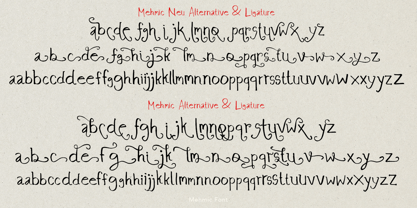 Mehnic Neu Alternative & Ligature
abcde fgh ijk lmno pqrstuvwx yz
a b c d e fghijk lm n o pqrs t u v w x y z
aabbccddeeffgghhiijjkkllmmnnooppqqrrssttuuvvwwxxyyzz
Mehnic Alternative & Ligature
abcde fgh ijk lmnopqr stuvwx yz
a b c d e f g h i jk lm n o pqrs t u v w x y z
aabbccddeeffgghhiijjkkllmmnnooppqqrrssttuuvvwwxxyyzz